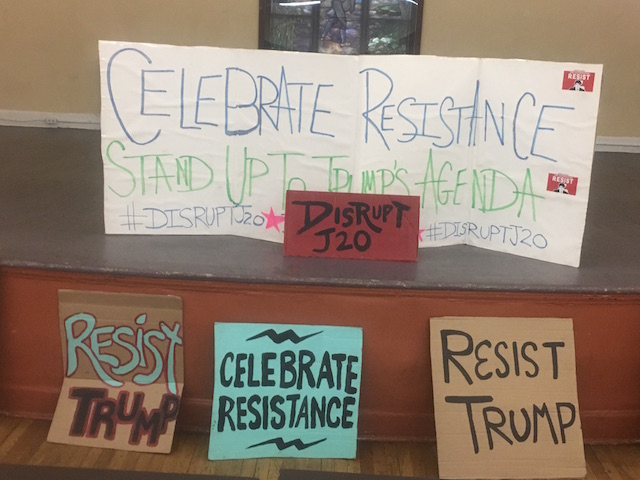 CELEBRATE RESISTANCE
RESIST
STAND UP TO TRUMP'S AGENDA
RESIST
#DISRUPTJ20
#DISRUPTJ20
DISRUPT
J20
RESIST
TRUMP
CELEBRATE
RESISTANCE
RESIST
TRUMP